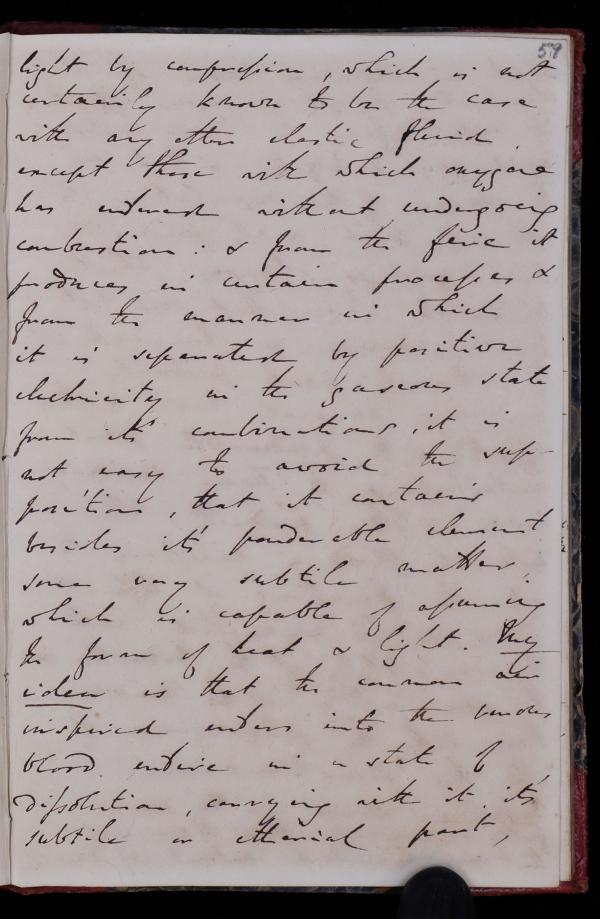 59
light by compression, which is not
certainly known to be the case
with any other elastic fluid,
except those with which oxygene
has entered without undergoing
combustion: & from the fire it
produces in certain processes &
from the manner in which
it is separated by positive
electricity in the gaseous state
from it's combinations, it is
not easy to avoid the sup-
position, that it contains
besides it's ponderable element
some very subtile matter,
which is capable of assuming
the form of heat & light. My
idea is that the common air
inspired enters into the venous
blood entire in a state of
dissolution, carrying with it it's
subtile or etherial part,